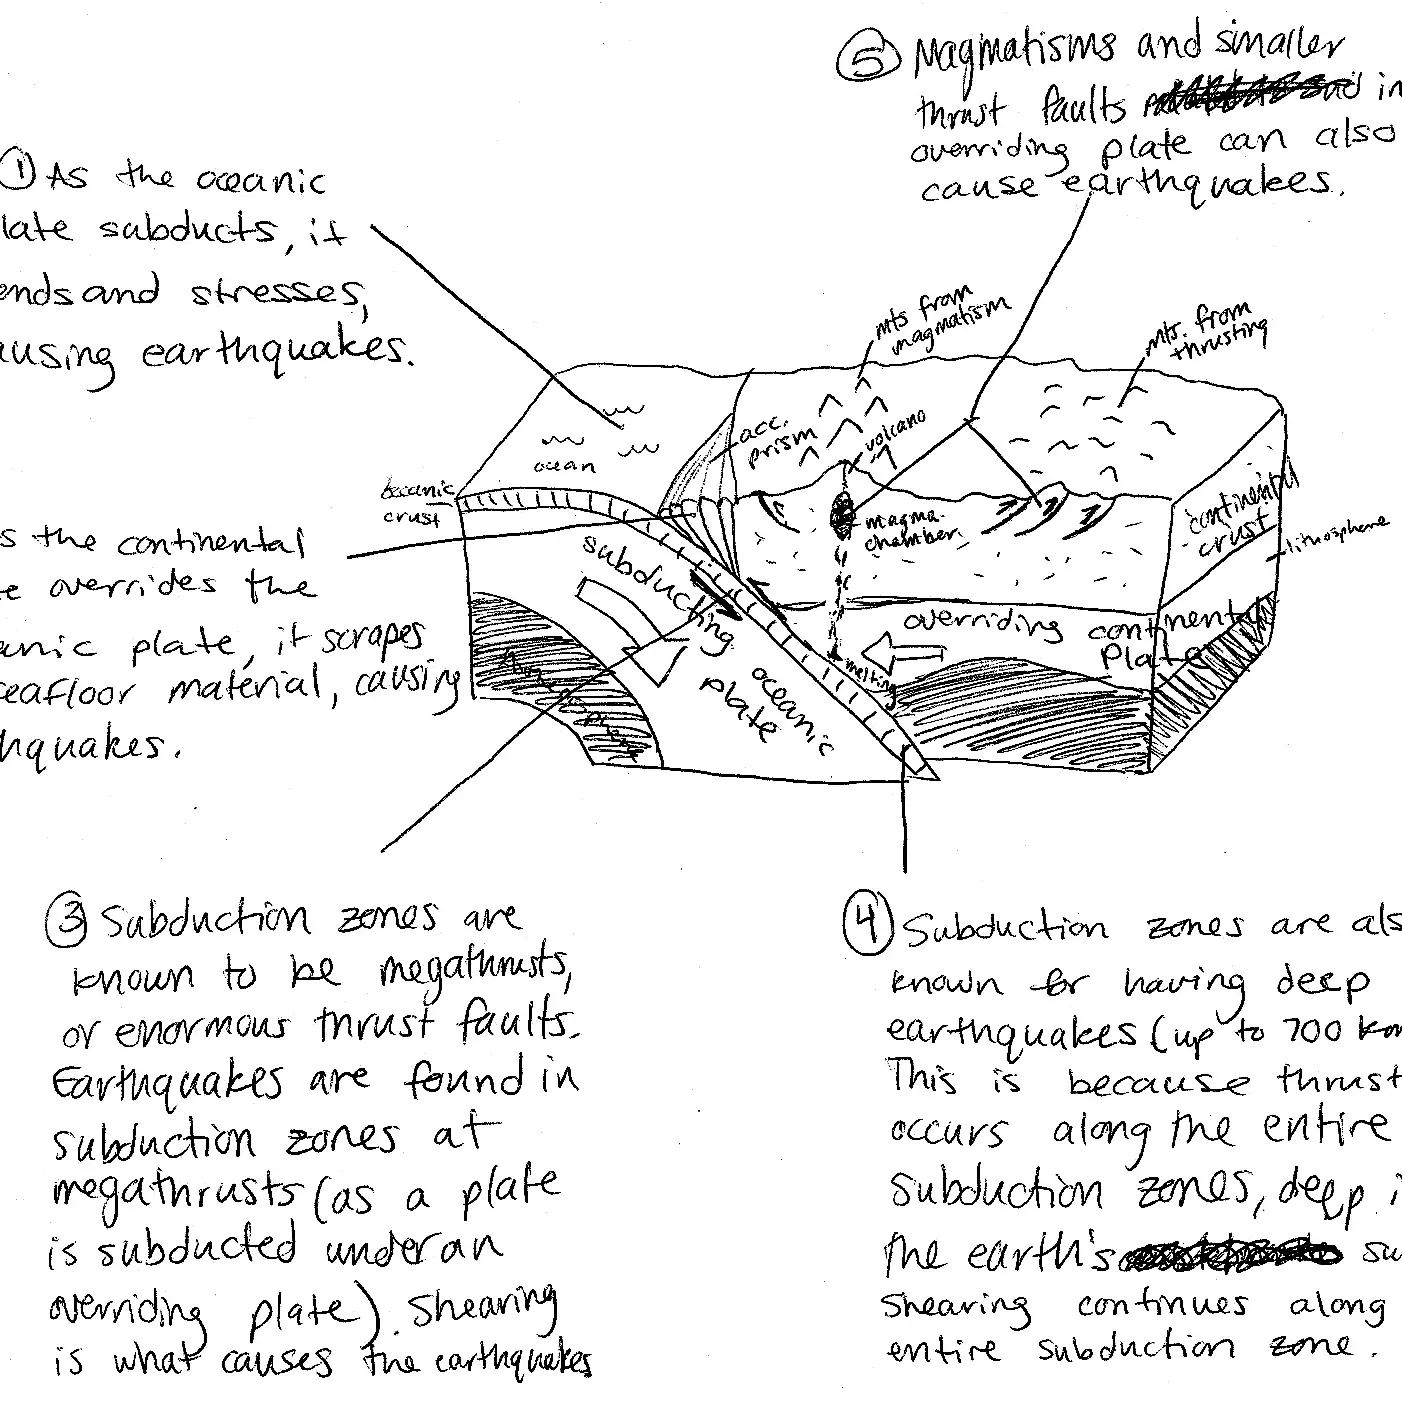 5 Magmatisms and smaller
thrust faults in
overriding plate can also
cause earthquakes.
1 As the oceanic
late subducts, it
ends and stresses,
ausing earthquakes.
mts from
magmatism
mts. from
thrusting
acc.
prism
volcano
ocean
oceanic
crust
magma
chamber
continental
crust
lithosphere
s the continental
e overrides the
anic plate, it scrapes
eafloor material, causing
hquakes.
subducting
oceanic
plate
overriding continental
Plate
melting
3 Subduction zones are
known to be megathrusts,
or enormous thrust faults.
Earthquakes are found in
subduction zones at
megathrusts (as a plate
is subducted under an
overriding plate). Shearing
is what causes the earthquakes
4 Subduction zones are als
known for having deep
earthquakes (up to 700 km
This is because thrust
occurs along the entire
subduction zones, deep i
the earth's su
Shearing continues along
entire subduction zone.